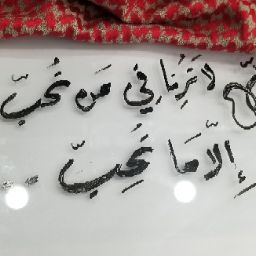 لا تُرِنا في مَن نُحبّ
إلّا مَا نُحِبّ ..